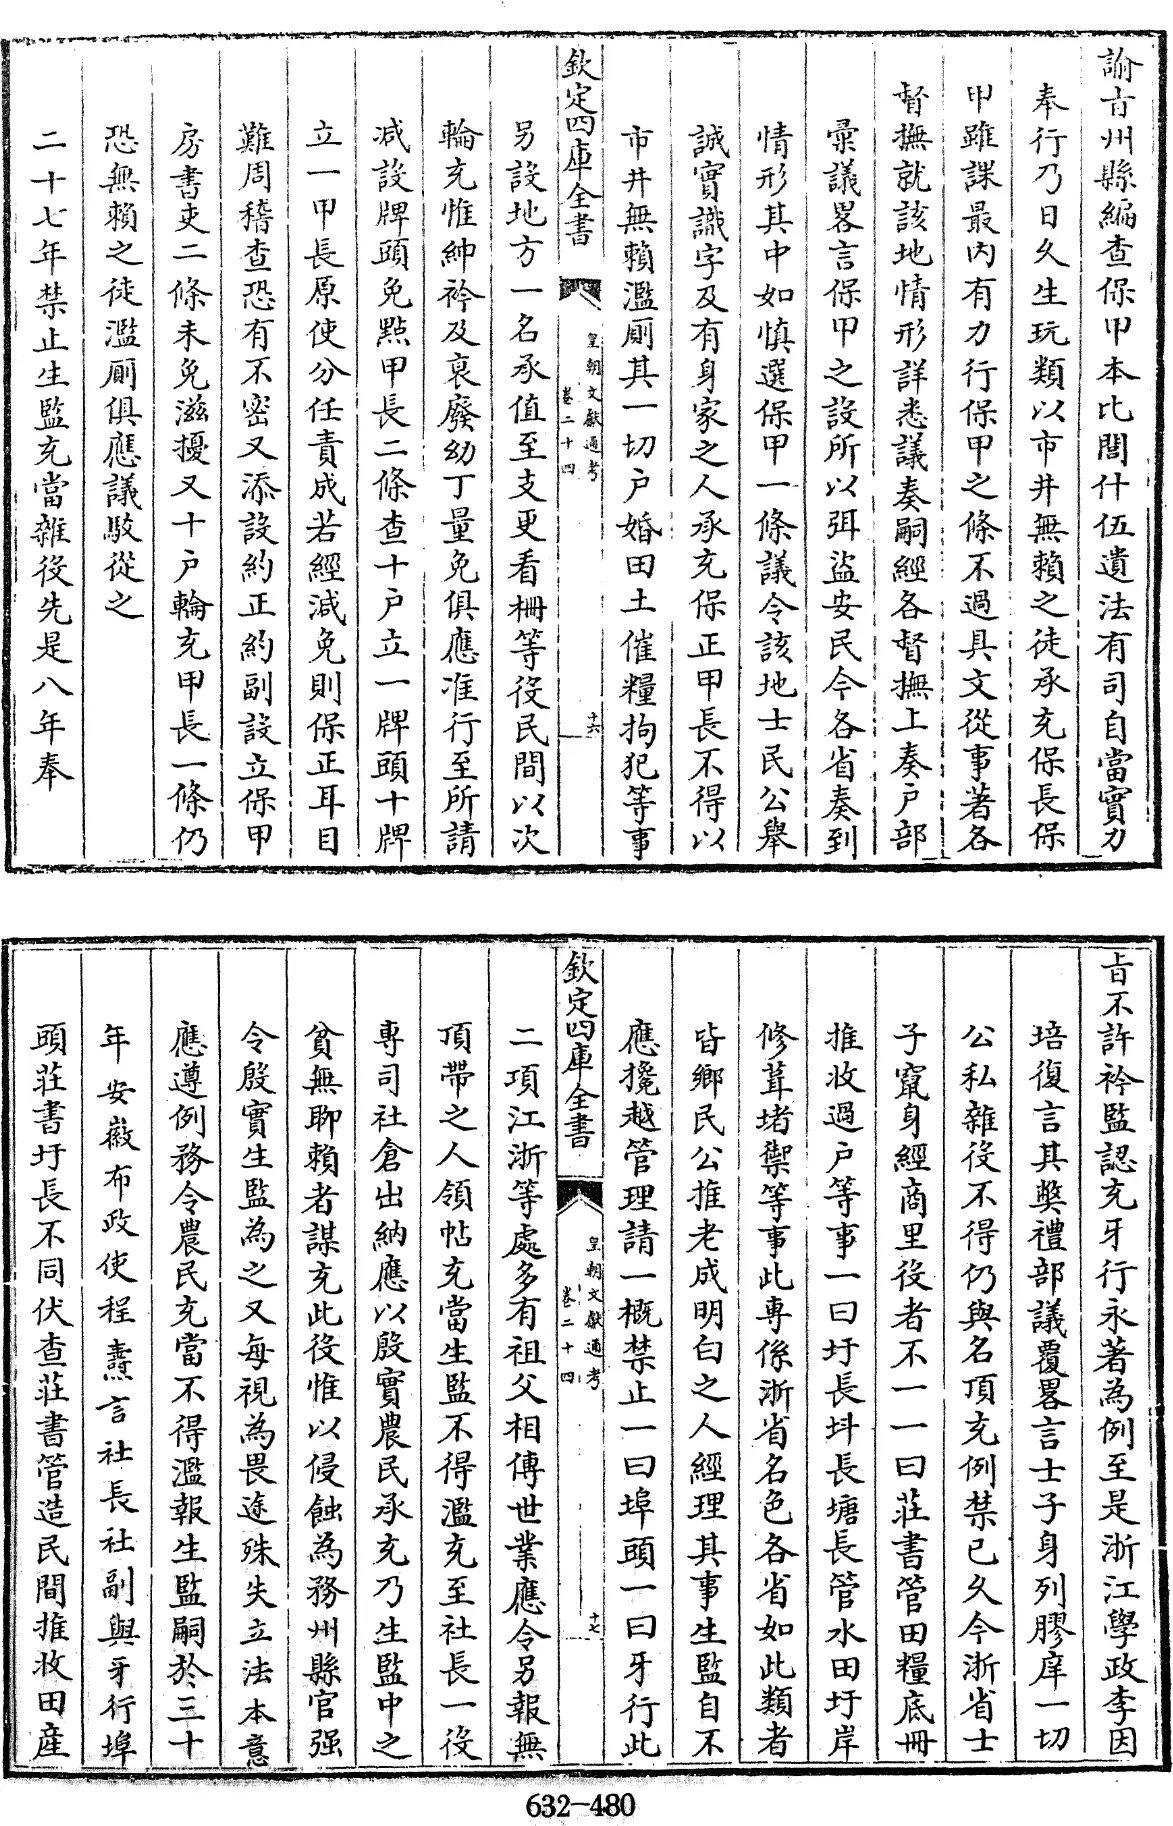 諭旨州縣編查保甲本比閭什伍遺法有司自當實力
奉行乃日久生玩類以市井無賴之徒承充保長保
甲雖課最內有力行保甲之條不過具文從事著各
督撫就該地情形詳悉議奏嗣經各督撫上奏戶部
彙議畧言保甲之設所以弭盜安民今各省奏到
情形其中如慎選保甲一條議令該地士民公舉
誠實識字及有身家之人承充保正甲長不得以
市井無賴濫厠其一切户婚田土催糧拘犯等事
欽定四庫全書
皇朝文獻通考
卷二十四
十六
另設地方一名承值至支更看柵等役民間以次
輪充惟紳衿及衰廢幼丁量免俱應准行至所請
減設牌頭免點甲長二條查十户立一牌頭十牌
立一甲長原使分任責成若經減免則保正耳目
難周稽查恐有不密又添設約正約副設立保甲
房書吏二條未免滋擾又十户輪充甲長一條仍
恐無賴之徒濫厠俱應議駮從之
二十七年禁止生監充當雜役先是八年奉
旨不許衿監認充牙行永著為例至是浙江學政李因
培復言其弊禮部議覆畧言士子身列膠庠一切
公私雜役不得仍與名頂充例禁已久今浙省士
子竄身經商里役者不一一曰莊書管田糧底冊
推收過户等事一曰圩長圳長塘長管水田圩岸
修葺堵禦等事此專係浙省名色各省如此類者
皆鄉民公推老成明白之人經理其事生監自不
應攙越管理請一概禁止一曰埠頭一曰牙行此
欽定四庫全書
皇朝文獻通考
卷二十四
十七
二項江浙等處多有祖父相傳世業應令另報無
頂帶之人領帖充當生監不得濫充至社長一役
專司社倉出納應以殷實農民承充乃生監中之
貧無聊賴者謀充此役惟以侵蝕為務州縣官强
令殷實生監為之又每視為畏途殊失立法本意
應遵例務令農民充當不得濫報生監嗣於三十
年安徽布政使程燾言社長社副與牙行埠
頭莊書圩長不同伏查莊書管造民間推收田產
632-480